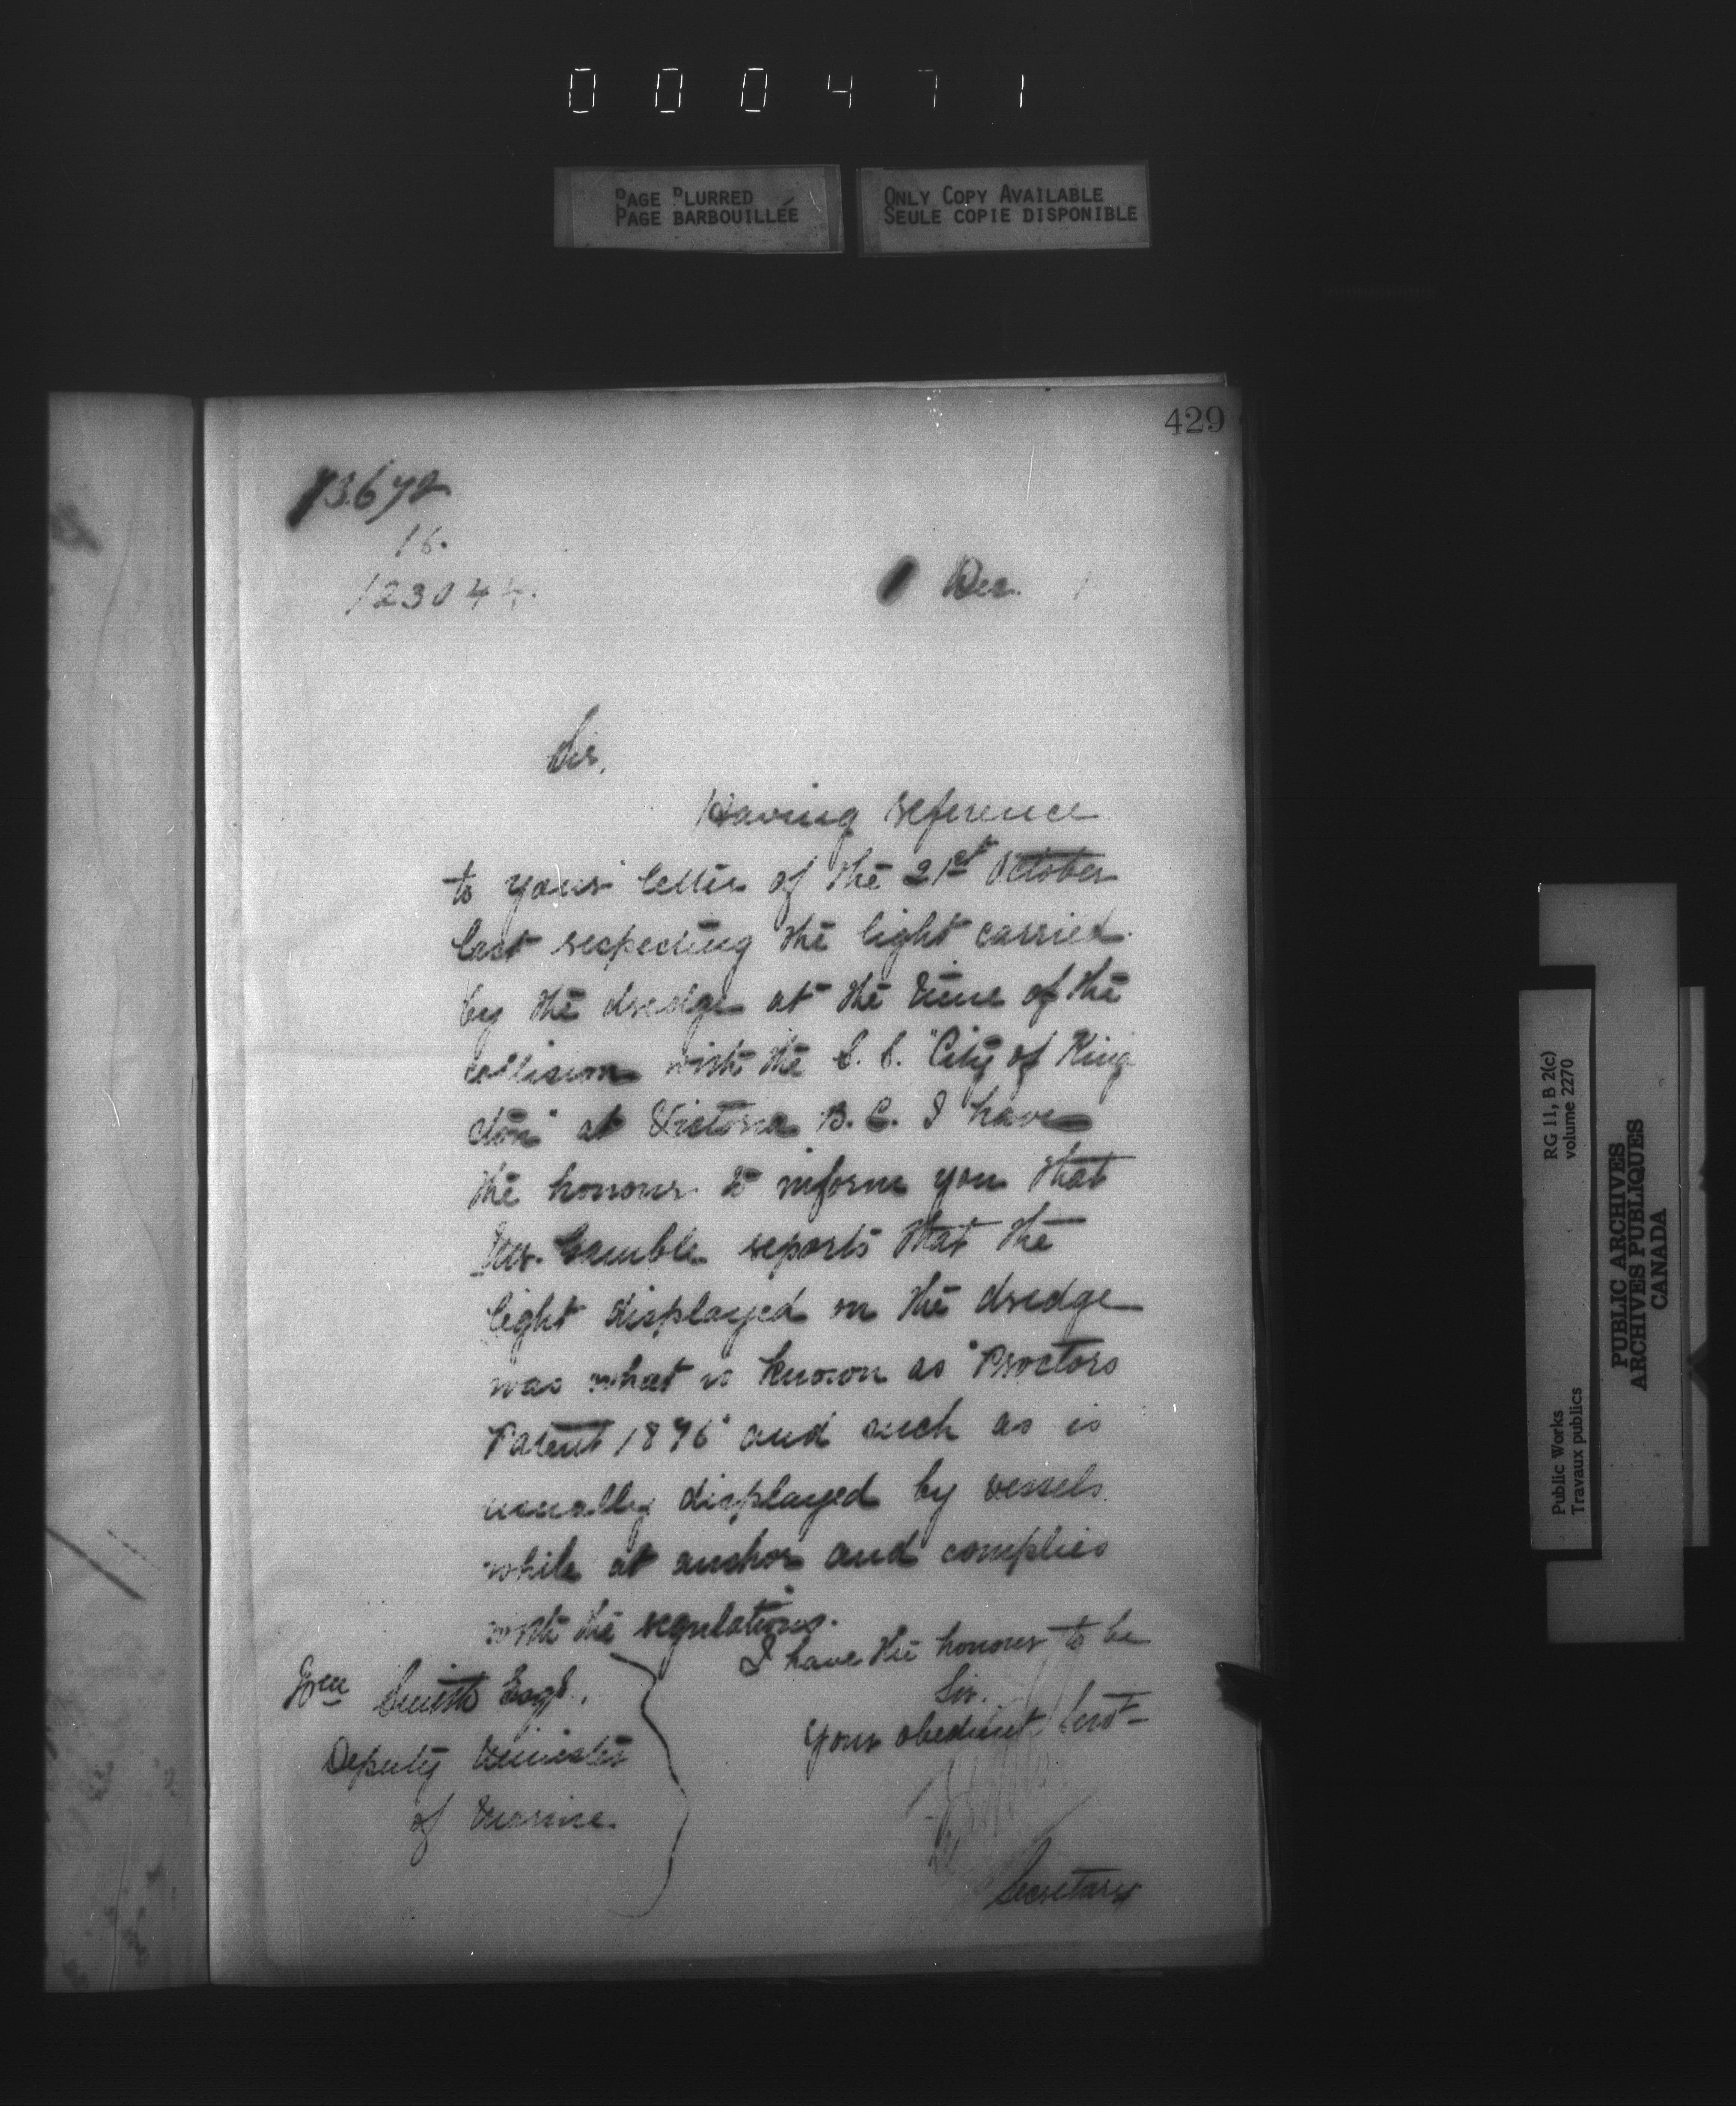 000471
PAGE BLURRED
PAGE BARBOUILLÉE
ONLY COPY AVAILABLE
SEULE COPIE DISPONIBLE
429
73672
16.
123044.
Dec. 1
Sir,
Having reference
to your letter of the 21st October
last respecting the light carried
by the dredge at the time of the
collision with the S. S. "City of King
ston" at Victoria B. C. I have
the honour to inform you that
Mr. Gamble reports that the
light displayed on the dredge
was what is known as "Proctors
Patent 1876" and such as is
usually displayed by vessels
while at anchor and complies
with the regulations.
I have the honour to be
Sir,
Your obedient Servt
Wm Smith Esqr.
Deputy Minister
of Marine.
Secretary
RG 11, B 2(c)
volume 2270
Public Works
Travaux publics
PUBLIC ARCHIVES
ARCHIVES PUBLIQUES
CANADA